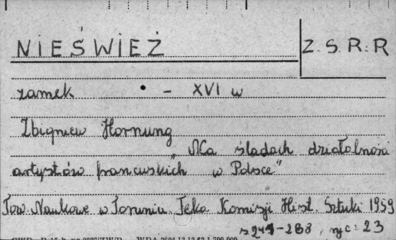 NIEŚWIEŻ Z.S.R.R
zamek • – XVI w
Zbigniew Hornung
„Na śladach działalności
artystów francuskich w Polsce"
Tow. Naukowe w Toruniu. Teka Komisji Hist. Sztuki 1959
s 247-288, ryc: 23